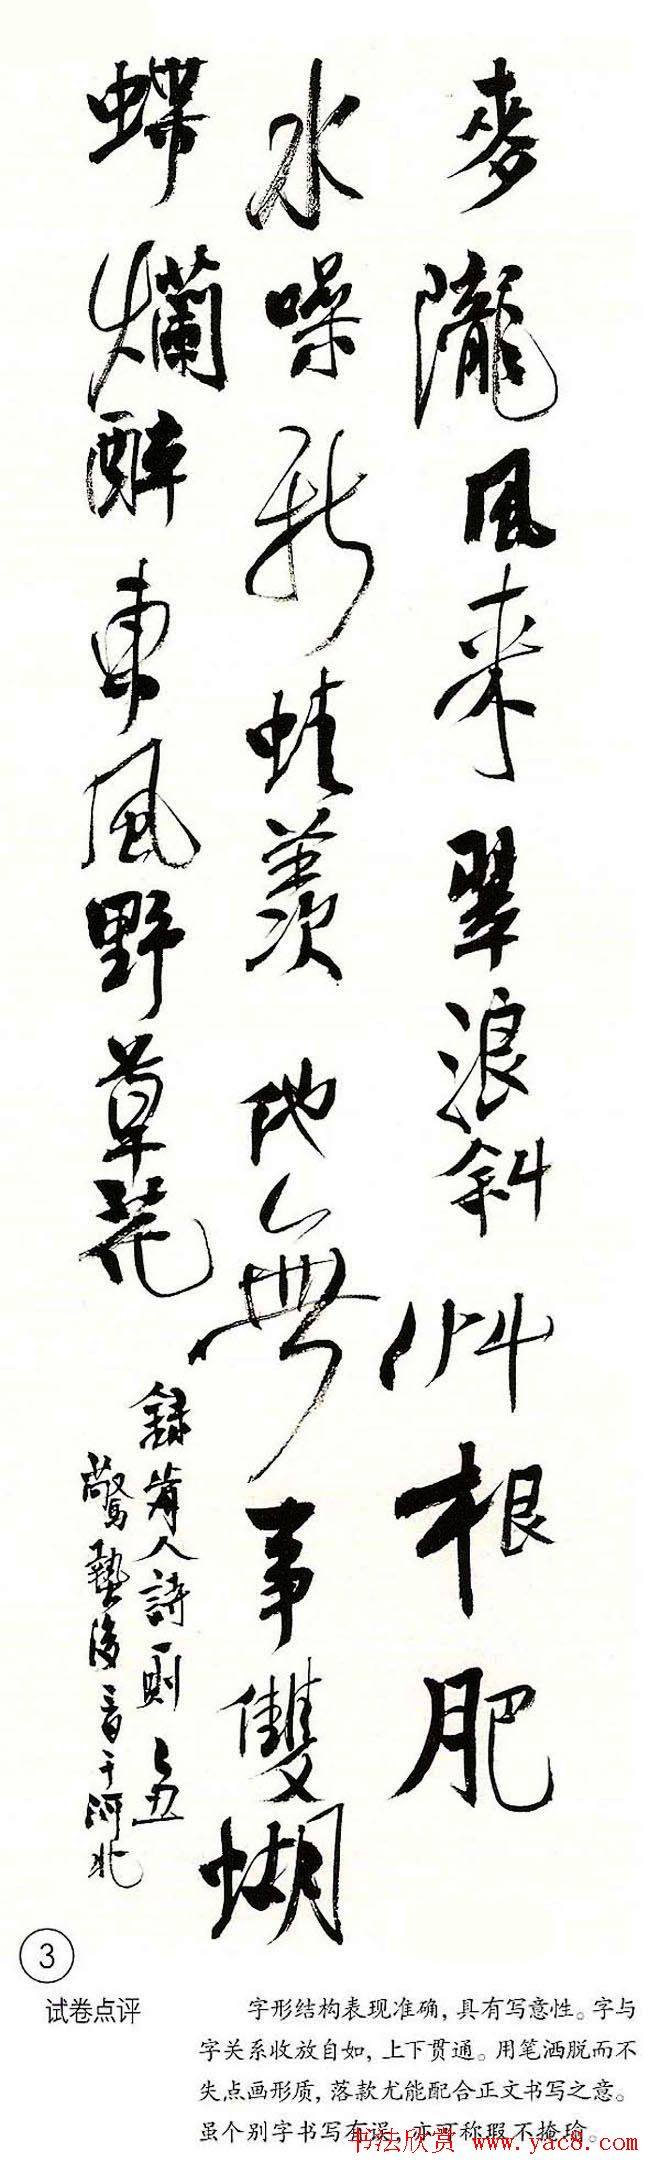 麥隴風來翠浪斜艸根肥
水噪新蛙羨他無事雙蝴
蝶爛醉東風野草花
錄前人詩一則 乙丑
驚蟄後一日于河北
③
试卷点评
字形结构表现准确，具有写意性。字与
字关系收放自如，上下贯通。用笔洒脱而不
失点画形质，落款尤能配合正文书写之意。
虽个别字书写有误，亦可称瑕不掩瑜。
书法欣赏 www.yac8.com